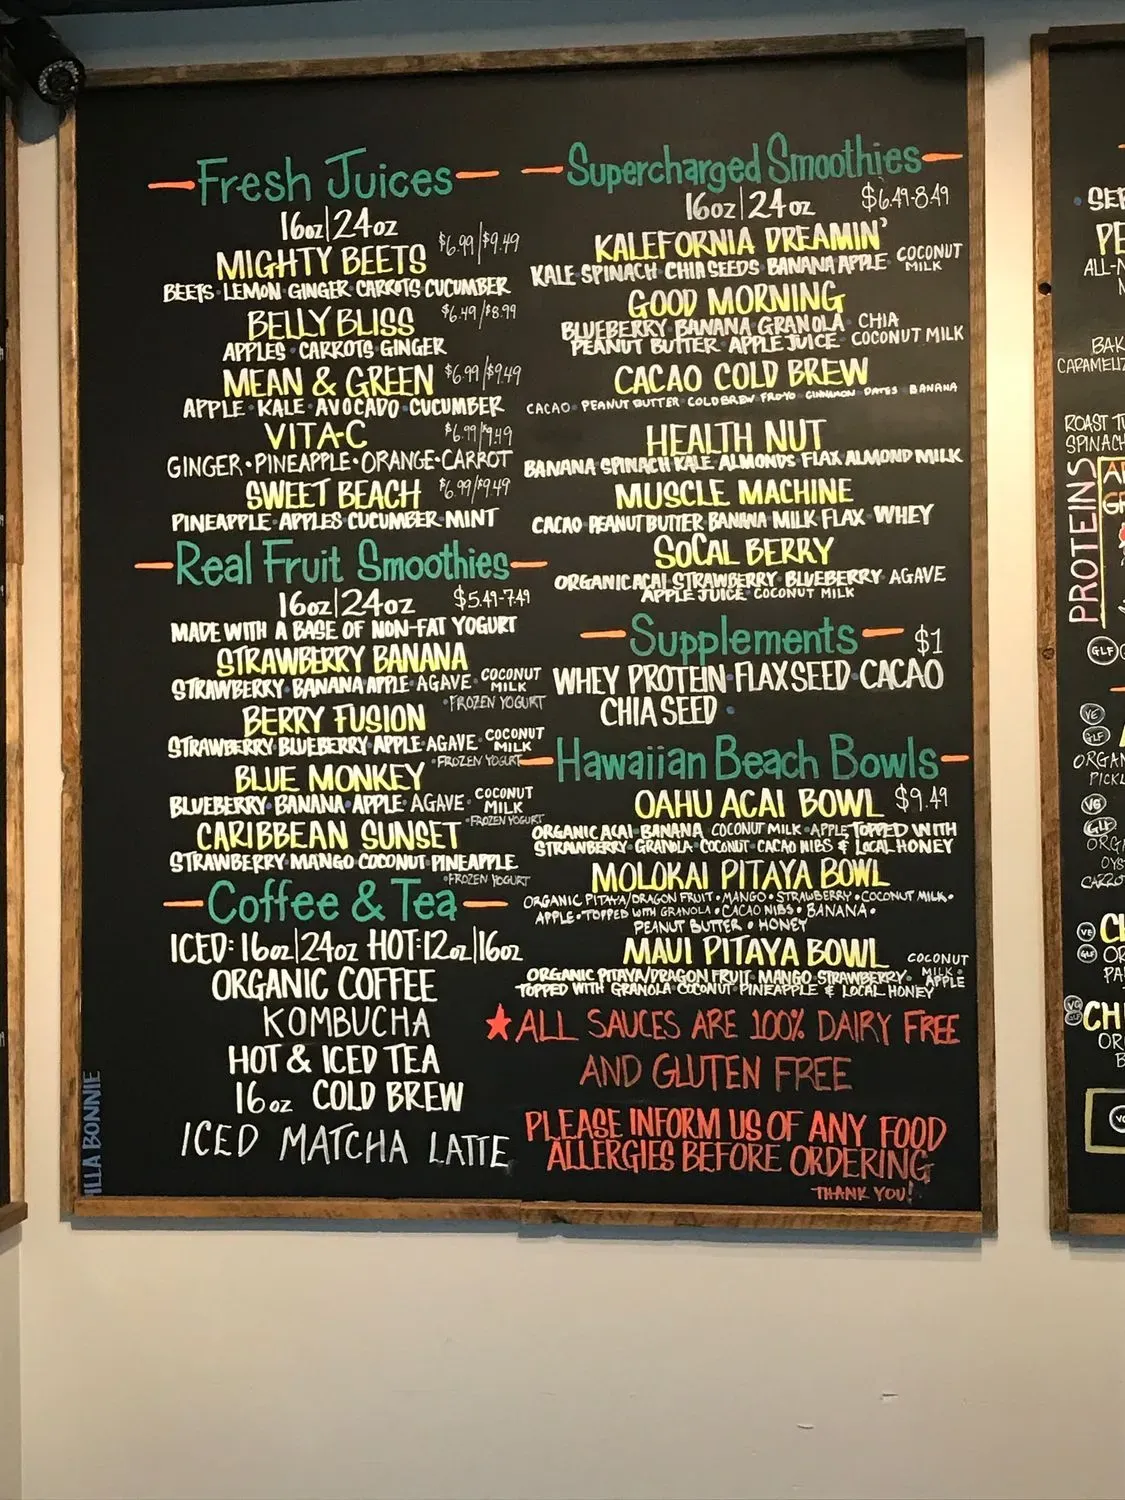 Fresh Juices
16oz|24oz
MIGHTY BEETS $6.99/$9.49
BEETS · LEMON · GINGER · CARROTS · CUCUMBER
BELLY BLISS $6.49/$8.99
APPLES · CARROTS · GINGER
MEAN & GREEN $6.99/$9.49
APPLE · KALE · AVOCADO · CUCUMBER
VITA-C $6.99/$9.49
GINGER · PINEAPPLE · ORANGE · CARROT
SWEET BEACH $6.99/$9.49
PINEAPPLE · APPLES · CUCUMBER · MINT
Real Fruit Smoothies
16oz|24oz $5.49-7.49
MADE WITH A BASE OF NON-FAT YOGURT
STRAWBERRY BANANA
STRAWBERRY · BANANA · APPLE · AGAVE · COCONUT MILK
· FROZEN YOGURT
BERRY FUSION
STRAWBERRY · BLUEBERRY · APPLE · AGAVE · COCONUT MILK
· FROZEN YOGURT
BLUE MONKEY
BLUEBERRY · BANANA · APPLE · AGAVE · COCONUT MILK
· FROZEN YOGURT
CARIBBEAN SUNSET
STRAWBERRY · MANGO · COCONUT · PINEAPPLE
· FROZEN YOGURT
Coffee & Tea
ICED: 16oz|24oz HOT: 12oz|16oz
ORGANIC COFFEE
KOMBUCHA
HOT & ICED TEA
16oz COLD BREW
ICED MATCHA LATTE
ILLA BONNIE
Supercharged Smoothies
16oz|24oz $6.49-8.49
KALEFORNIA DREAMIN'
KALE · SPINACH · CHIA SEEDS · BANANA · APPLE · COCONUT MILK
GOOD MORNING
BLUEBERRY · BANANA · GRANOLA · CHIA
PEANUT BUTTER · APPLE JUICE · COCONUT MILK
CACAO COLD BREW
CACAO · PEANUT BUTTER · COLD BREW · FROYO · CINNAMON · DATES · BANANA
HEALTH NUT
BANANA · SPINACH · KALE · ALMONDS · FLAX · ALMOND MILK
MUSCLE MACHINE
CACAO · PEANUT BUTTER · BANANA · MILK · FLAX · WHEY
SOCAL BERRY
ORGANIC ACAI · STRAWBERRY · BLUEBERRY · AGAVE
APPLE JUICE · COCONUT MILK
Supplements $1
WHEY PROTEIN · FLAXSEED · CACAO
CHIA SEED ·
Hawaiian Beach Bowls
OAHU ACAI BOWL $9.49
ORGANIC ACAI · BANANA · COCONUT MILK · APPLE TOPPED WITH
STRAWBERRY · GRANOLA · COCONUT · CACAO NIBS & LOCAL HONEY
MOLOKAI PITAYA BOWL
ORGANIC PITAYA/DRAGON FRUIT · MANGO · STRAWBERRY · COCONUT MILK ·
APPLE · TOPPED WITH GRANOLA · CACAO NIBS · BANANA ·
PEANUT BUTTER · HONEY
MAUI PITAYA BOWL
ORGANIC PITAYA/DRAGON FRUIT · MANGO · STRAWBERRY · COCONUT MILK · APPLE
TOPPED WITH GRANOLA · COCONUT · PINEAPPLE & LOCAL HONEY
★ ALL SAUCES ARE 100% DAIRY FREE
AND GLUTEN FREE
PLEASE INFORM US OF ANY FOOD
ALLERGIES BEFORE ORDERING
THANK YOU!
BAK
ROAST
SPINACH
PROTEINS
GLF
VE
GLF
PICKL
VG
GLF
VE
GLF
VG
GLF